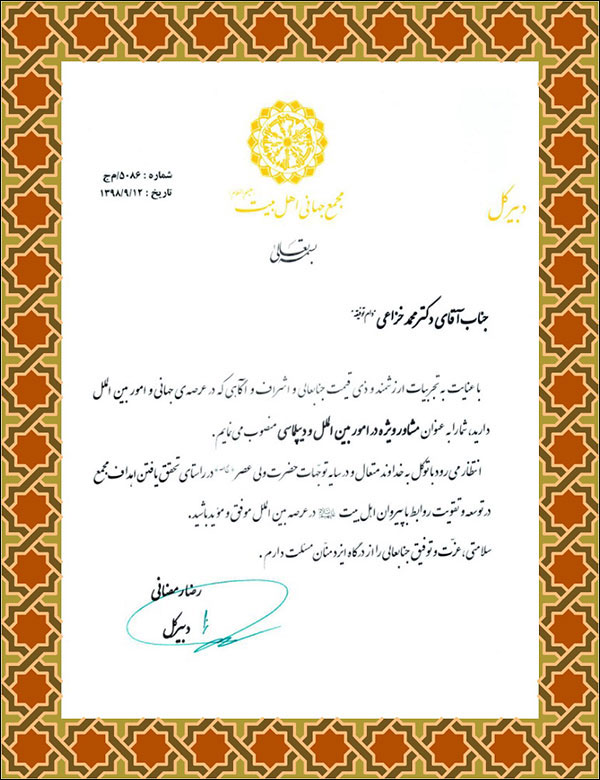 شماره : ۵۰۸۶/م ج
تاریخ : ۱۳۹۸/۹/۱۲
مجمع جهانی اهل بیت
دبیرکل
بسمه تعالی
جناب آقای دکتر محمد خزاعی «دام توفیقه»
با عنایت به تجربیات ارزشمند و ذی قیمت جنابعالی و اشراف و آگاهی که در عرصه‌ی جهانی و امور بین الملل
دارید، شما را به عنوان مشاور ویژه در امور بین الملل و دیپلماسی منصوب می نمایم.
انتظار می رود با توکل به خداوند متعال و در سایه توجهات حضرت ولی عصر در راستای تحقق یافتن اهداف مجمع
در توسعه و تقویت روابط با پیروان اهل بیت در عرصه بین الملل موفق و مؤید باشید.
سلامتی، عزّت و توفیق جنابعالی را از درگاه ایزد منّان مسئلت دارم.
رضا رمضانی
دبیرکل